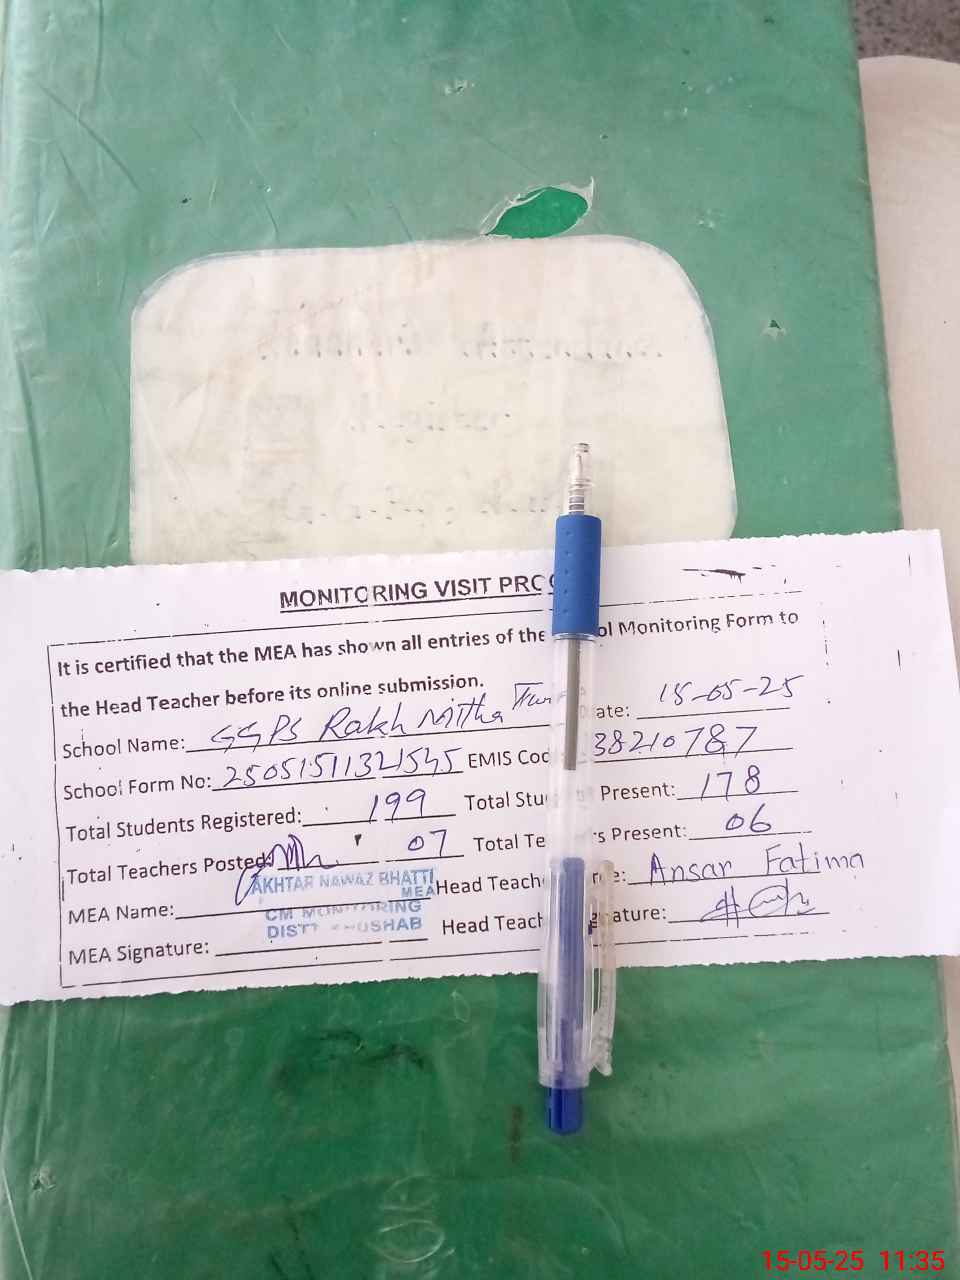 MONITORING VISIT
It is certified that the MEA has shown all entries of the Monitoring Form to
the Head Teacher before its online submission.
School Name: GGPS Rakh Mitha ate: 15-05-25
School Form No: 25051511321545 EMIS Cod 38210787
Total Students Registered: 199 Total Stu Present: 178
Total Teachers Posted: 07 Total Te rs Present: 06
AKHTAR NAWAZ BHATTI
MEA
MEA Name: Head Teach e: Ansar Fatima
CM MONITORING
DISTT KHUSHAB
MEA Signature: Head Teach gnature:
15-05-25 11:35